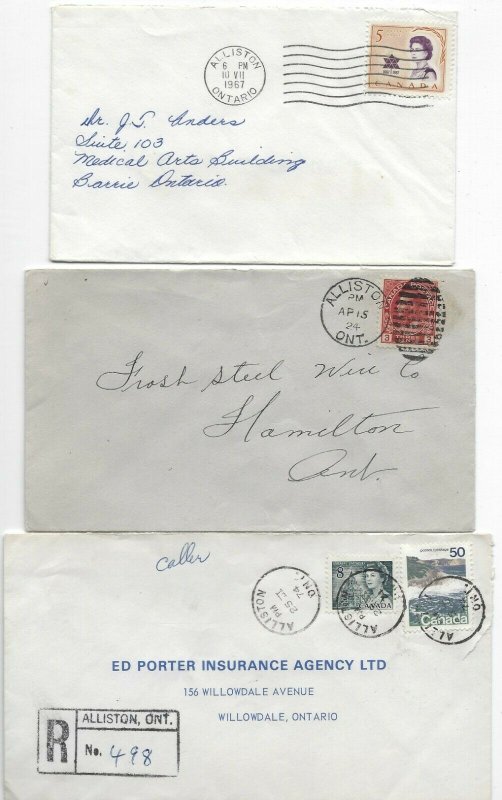 ALLISTON
6 PM
10 VII
1967
ONTARIO
5
CANADA
Dr. J.T. Anders
Suite 103
Medical Arts Building
Barrie Ontario.
ALLISTON
PM
AP 15
24
ONT.
3 3
Frost Steel Wire Co
Hamilton
Ont.
caller
ALLISTON
PM
25 II
74
ONT.
8
CANADA
50
Canada
ED PORTER INSURANCE AGENCY LTD
156 WILLOWDALE AVENUE
WILLOWDALE, ONTARIO
R
ALLISTON, ONT.
No. 498